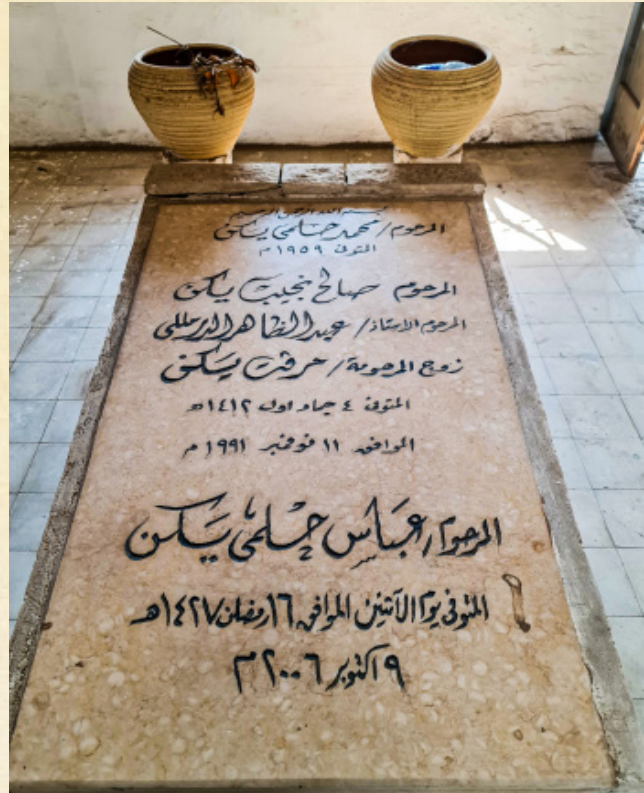 بسم الله الرحمن الرحيم
المرحوم / محمد حلمى يكن
المتوفى ١٩٥٩ م
المرحوم صالح نجيب يكن
المرحوم الاستاذ / عبد الظاهر الدرمللى
زوج المرحومة / مرفت يكن
المتوفى ٤ جماد اول ١٤١٢ هـ
الموافق ١١ نوفمبر ١٩٩١ م
المرحوم / عباس حلمى يكن
المتوفى يوم الآثنين الموافق ١٦ رمضان ١٤٢٧ هـ
٩ اكتوبر ٢٠٠٦ م